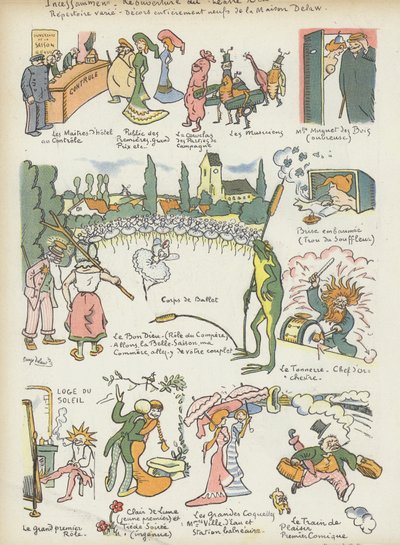 Incessamment. Réouverture du Théâtre
Répertoire varié - Décors entièrement neufs de la Maison Delaw.
SAISON
CONTRÔLE
Les Maîtres d'hôtel
au Contrôle
Public des
Premières, Grands
Prix etc..
La
des Parties de
Campagne
Les Musiciens
Mme Muguet des Bois
(ouvreuse)
Brise embaumée
(Trou du Souffleur)
Corps de Ballet
Le Bon Dieu - (Rôle du Compère)
Allons, la Belle Saison, ma
Commère, allez-y de votre couplet
Le Tonnerre - Chef d'or-
chestre.
LOGE DU
SOLEIL
Le grand premier
Rôle.
Clair de Lune
(jeune premier) et
Tiède Soirée
(ingénue)
Les Grandes Coquettes
Mmes Ville d'Eau et
Station balnéaire.
Le Train de
Plaisir
Premier Comique